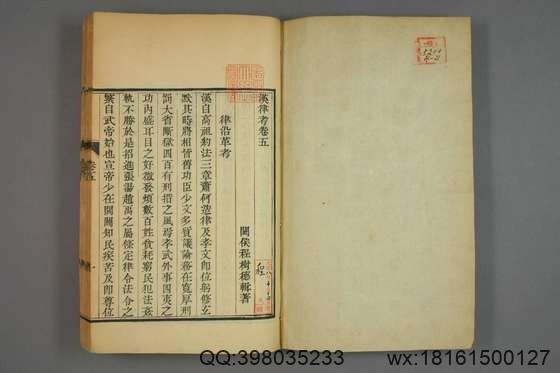 漢律考卷五
閩侯程樹德輯著
律沿革考
漢自高祖約法三章蕭何造律及孝文即位躬修玄
默其時將相皆舊功臣少文多質議論務在寬厚刑
罰大省斷獄四百有刑措之風焉孝武外事四夷之
功內盛耳目之好徵發煩數百姓貧耗窮民犯法姦
軌不勝於是招進張湯趙禹之屬條定律令法令之
繁自武帝始也宣帝少在閭閻知民疾苦及即尊位
卷五
QQ:398035233
wx:18161500127